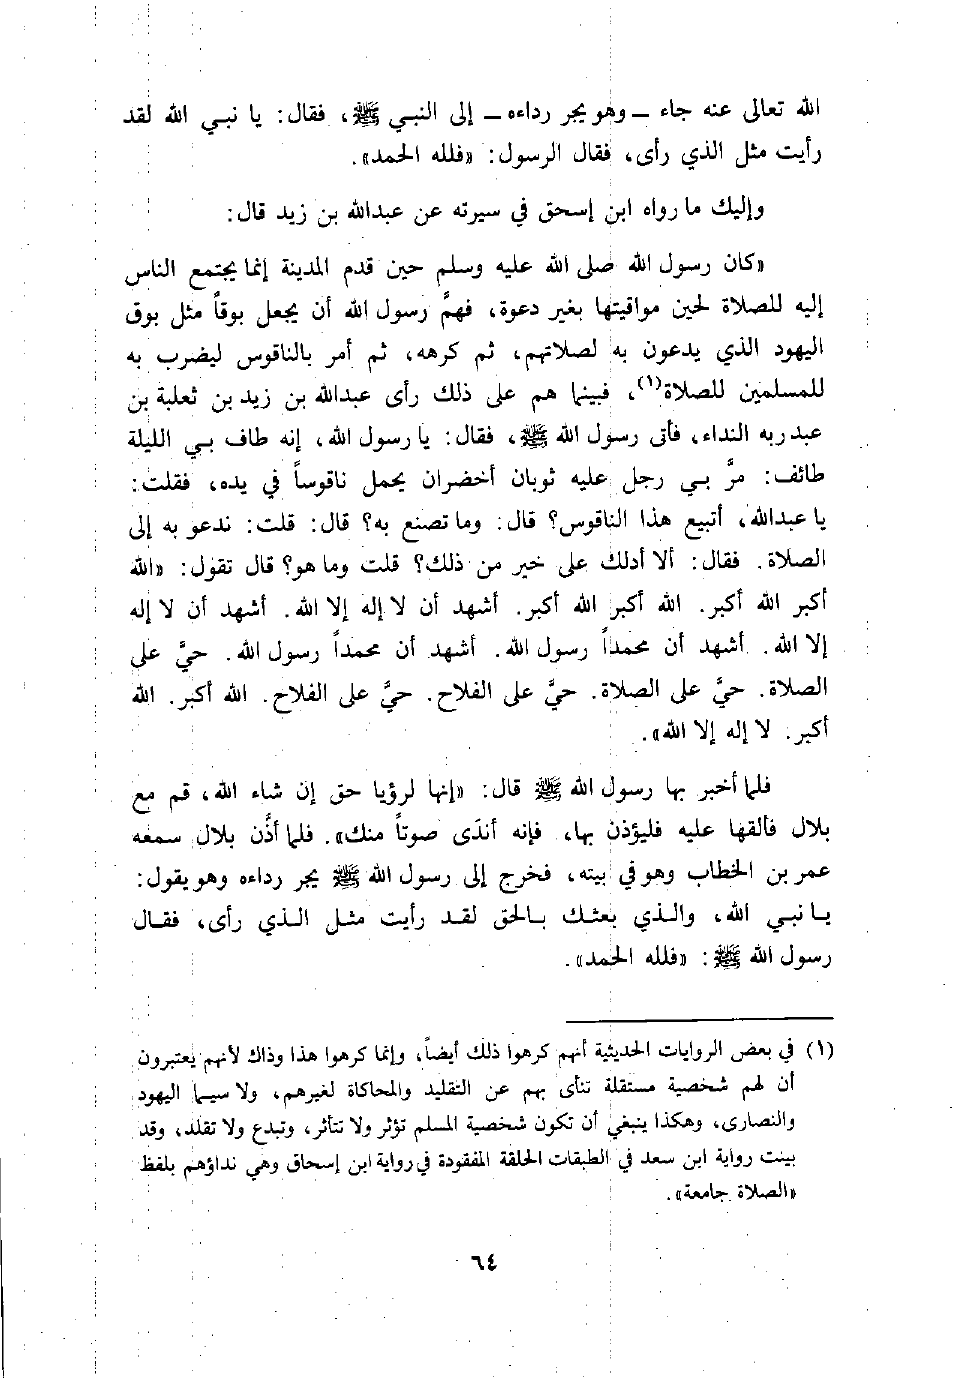 الله تعالى عنه جاء ــ وهو يجر رداءه ــ إلى النبي ﷺ، فقال: يا نبي الله لقد
رأيت مثل الذي رأى، فقال الرسول: «فلله الحمد».
وإليك ما رواه ابن إسحق في سيرته عن عبدالله بن زيد قال:
«كان رسول الله صلى الله عليه وسلم حين قدم المدينة إنما يجتمع الناس
إليه للصلاة لحين مواقيتها بغير دعوة، فهمَّ رسول الله أن يجعل بوقاً مثل بوق
اليهود الذي يدعون به لصلاتهم، ثم كرهه، ثم أمر بالناقوس ليضرب به
للمسلمين للصلاة(١)، فبينما هم على ذلك رأى عبدالله بن زيد بن ثعلبة بن
عبد ربه النداء، فأتى رسول الله ﷺ، فقال: يا رسول الله، إنه طاف بي الليلة
طائف: مرَّ بي رجل عليه ثوبان أخضران يحمل ناقوساً في يده، فقلت:
يا عبدالله، أتبيع هذا الناقوس؟ قال: وما تصنع به؟ قال: قلت: ندعو به إلى
الصلاة. فقال: ألا أدلك على خير من ذلك؟ قلت وما هو؟ قال تقول: «الله
أكبر الله أكبر. الله أكبر الله أكبر. أشهد أن لا إله إلا الله. أشهد أن لا إله
إلا الله. أشهد أن محمداً رسول الله. أشهد أن محمداً رسول الله. حيَّ على
الصلاة. حيَّ على الصلاة. حيَّ على الفلاح. حيَّ على الفلاح. الله أكبر. الله
أكبر. لا إله إلا الله».
فلما أخبر بها رسول الله ﷺ قال: «إنها لرؤيا حق إن شاء الله، قم مع
بلال فألقها عليه فليؤذن بها، فإنه أندَى صوتاً منك». فلما أذَّن بلال سمعه
عمر بن الخطاب وهو في بيته، فخرج إلى رسول الله ﷺ يجر رداءه وهو يقول:
يا نبي الله، والذي بعثك بالحق لقد رأيت مثل الذي رأى، فقال
رسول الله ﷺ: «فلله الحمد».
(١) في بعض الروايات الحديثية أنهم كرهوا ذلك أيضاً، وإنما كرهوا هذا وذاك لأنهم يعتبرون
أن لهم شخصية مستقلة تنأى بهم عن التقليد والمحاكاة لغيرهم، ولا سيما اليهود
والنصارى، وهكذا ينبغي أن تكون شخصية المسلم تؤثر ولا تتأثر، وتبدع ولا تقلد، وقد
بينت رواية ابن سعد في الطبقات الحلقة المفقودة في رواية ابن إسحاق وهي نداؤهم بلفظ
«الصلاة جامعة».
٦٤